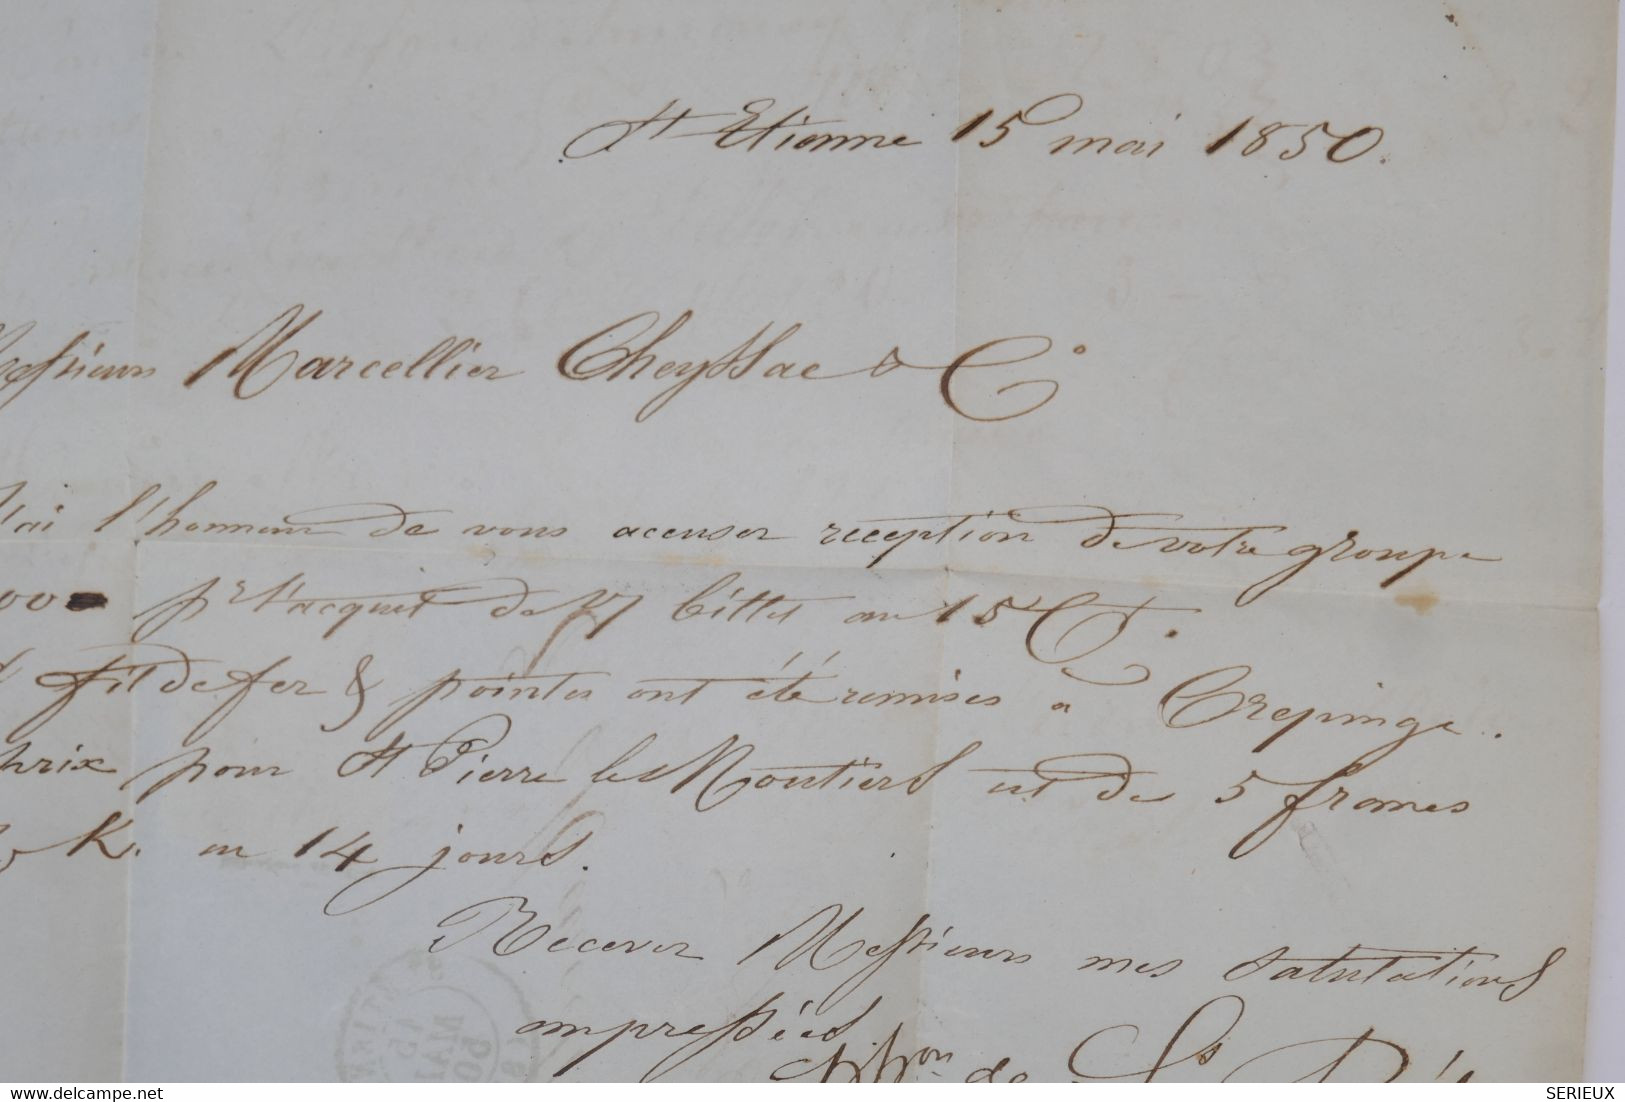 St Etienne 15 mai 1850.
Messieurs Marcellier Cheyssac & Co
J'ai l'honneur de vous accuser reception de votre groupe
00 pr l'acquit de billet au 15 Ct.
fil de fer & pointes ont été remises à Crepinge.
prix pour St Pierre les Moutiers est de 5 francs
K. en 14 jours.
Recevez Messieurs mes salutations
empressées
de St
SERIEUX